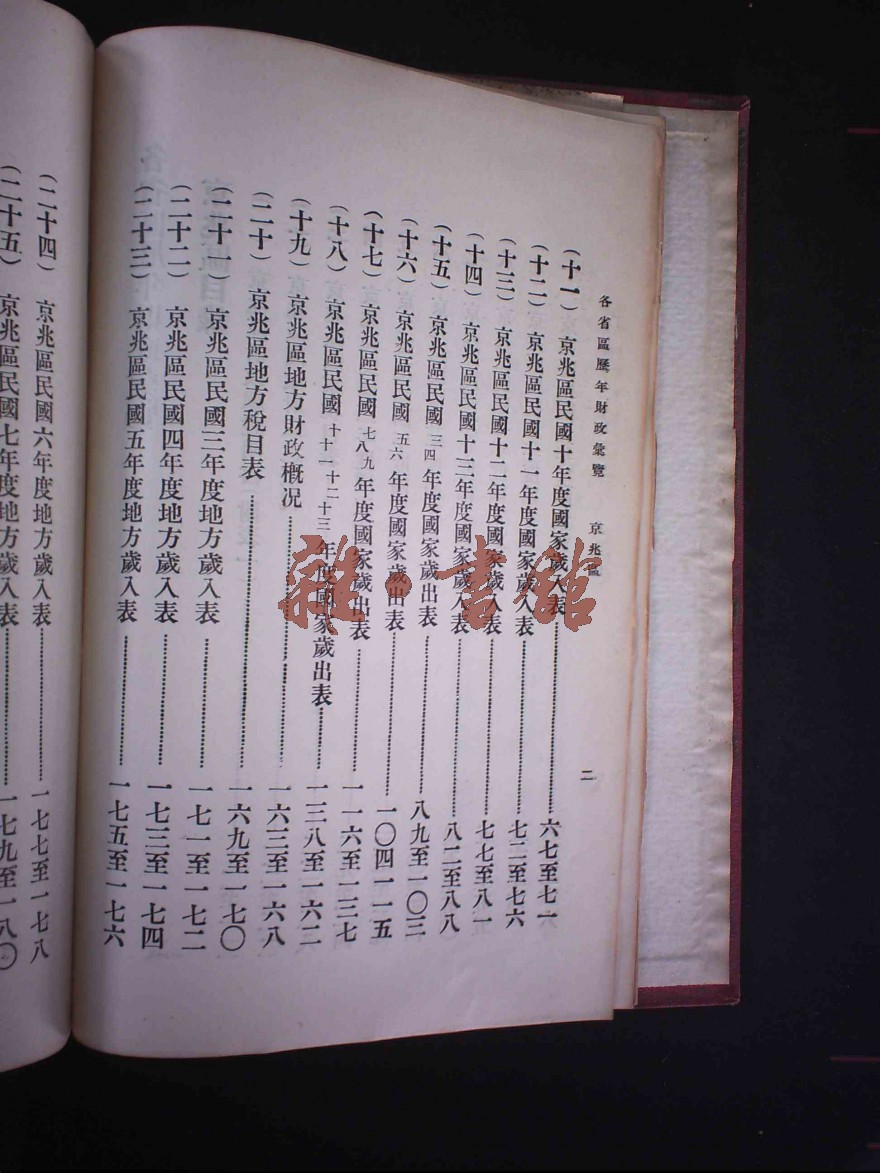 各省區歷年財政彙覽　京兆區　二
（十一）京兆區民國十年度國家歲入表…………六七至七一
（十二）京兆區民國十一年度國家歲入表…………七二至七六
（十三）京兆區民國十二年度國家歲入表…………七七至八一
（十四）京兆區民國十三年度國家歲入表…………八二至八八
（十五）京兆區民國三四年度國家歲出表…………八九至一〇三
（十六）京兆區民國五六年度國家歲出表…………一〇四一一五
（十七）京兆區民國七八九年度國家歲出表…………一一六至一三七
（十八）京兆區民國十十一十二十三年度國家歲出表…………一三八至一六二
（十九）京兆區地方財政概况…………一六三至一六八
（二十）京兆區地方稅目表…………一六九至一七〇
（二十一）京兆區民國三年度地方歲入表…………一七一至一七二
（二十二）京兆區民國四年度地方歲入表…………一七三至一七四
（二十三）京兆區民國五年度地方歲入表…………一七五至一七六
（二十四）京兆區民國六年度地方歲入表…………一七七至一七八
（二十五）京兆區民國七年度地方歲入表…………一七九至一八〇
雜·書館